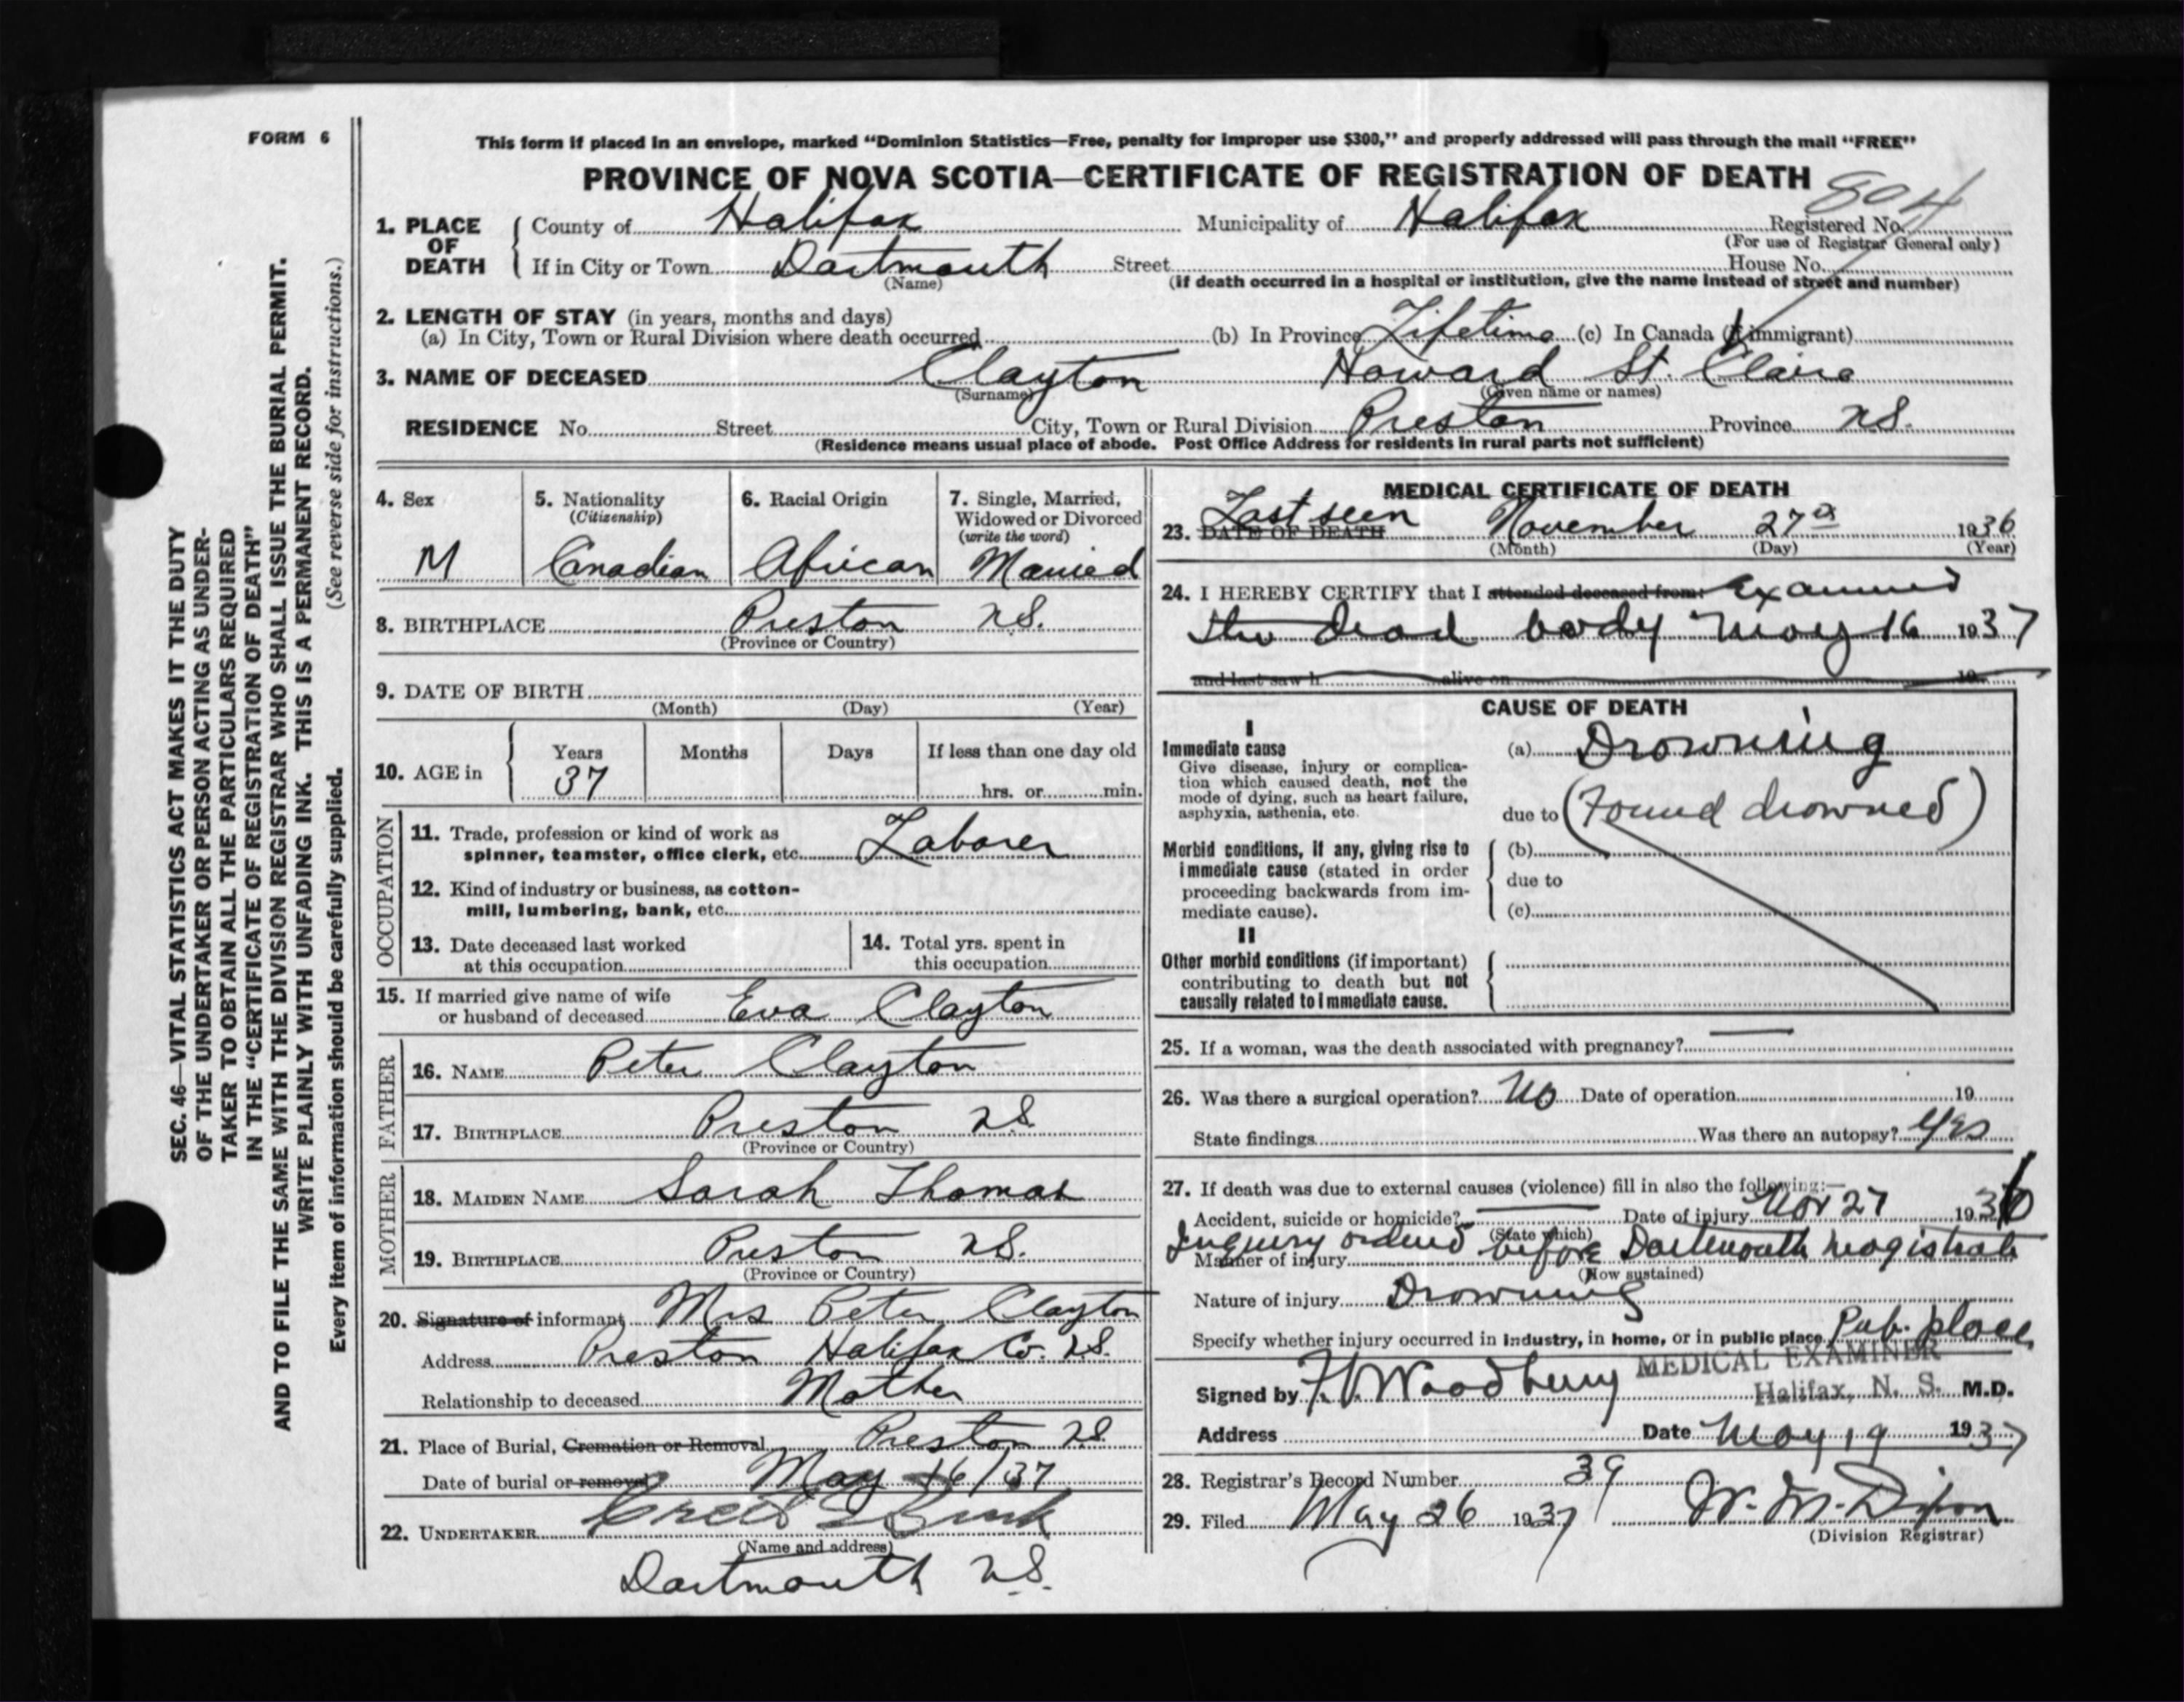 FORM 6
This form if placed in an envelope, marked "Dominion Statistics—Free, penalty for improper use $300," and properly addressed will pass through the mail "FREE"
PROVINCE OF NOVA SCOTIA—CERTIFICATE OF REGISTRATION OF DEATH
804
1. PLACE OF DEATH County of Halifax Municipality of Halifax Registered No.
(For use of Registrar General only)
If in City or Town Dartmouth Street House No.
(Name) (If death occurred in a hospital or institution, give the name instead of street and number)
2. LENGTH OF STAY (in years, months and days)
(a) In City, Town or Rural Division where death occurred (b) In Province Lifetime (c) In Canada (if immigrant)
3. NAME OF DECEASED Clayton Howard St. Claire
(Surname) (Given name or names)
RESIDENCE No. Street City, Town or Rural Division Preston Province N.S.
(Residence means usual place of abode. Post Office Address for residents in rural parts not sufficient)
4. Sex 5. Nationality 6. Racial Origin 7. Single, Married,
(Citizenship) Widowed or Divorced
(write the word)
M Canadian African Married
8. BIRTHPLACE Preston N.S.
(Province or Country)
9. DATE OF BIRTH
(Month) (Day) (Year)
10. AGE in Years Months Days If less than one day old
37 hrs. or min.
OCCUPATION
11. Trade, profession or kind of work as
spinner, teamster, office clerk, etc. Laborer
12. Kind of industry or business, as cotton-
mill, lumbering, bank, etc.
13. Date deceased last worked 14. Total yrs. spent in
at this occupation this occupation
15. If married give name of wife
or husband of deceased Eva Clayton
FATHER
16. NAME Peter Clayton
17. BIRTHPLACE Preston N.S.
(Province or Country)
MOTHER
18. MAIDEN NAME Sarah Thomas
19. BIRTHPLACE Preston N.S.
(Province or Country)
20. Signature of informant Mrs Peter Clayton
Address Preston Halifax Co. N.S.
Relationship to deceased Mother
21. Place of Burial, Cremation or Removal Preston N.S.
Date of burial or removal May 16/37
22. UNDERTAKER
(Name and address)
Dartmouth N.S.
MEDICAL CERTIFICATE OF DEATH
Last seen
23. DATE OF DEATH November 27th 1936
(Month) (Day) (Year)
24. I HEREBY CERTIFY that I attended deceased from: Examined
the dead body May 16 1937
and last saw h alive on 19
CAUSE OF DEATH
I
Immediate cause (a) Drowning
Give disease, injury or complica-
tion which caused death, not the
mode of dying, such as heart failure,
asphyxia, asthenia, etc. due to (Found drowned)
Morbid conditions, if any, giving rise to (b)
immediate cause (stated in order
proceeding backwards from im- due to
mediate cause). (c)
II
Other morbid conditions (if important)
contributing to death but not
causally related to immediate cause.
25. If a woman, was the death associated with pregnancy? —
26. Was there a surgical operation? No Date of operation 19
State findings Was there an autopsy? Yes
27. If death was due to external causes (violence) fill in also the following:—
Accident, suicide or homicide? — Date of injury Nov 27 1936
(State which)
Inquiry ordered before Dartmouth Magistrate
Manner of injury
(How sustained)
Nature of injury Drowning
Specify whether injury occurred in industry, in home, or in public place Pub. place
MEDICAL EXAMINER
Signed by Woodbury Halifax, N. S. M.D.
Address Date May 19 1937
28. Registrar's Record Number 39
29. Filed May 26 1937 W. M. Dixon
(Division Registrar)
SEC. 46—VITAL STATISTICS ACT MAKES IT THE DUTY
OF THE UNDERTAKER OR PERSON ACTING AS UNDER-
TAKER TO OBTAIN ALL THE PARTICULARS REQUIRED
IN THE "CERTIFICATE OF REGISTRATION OF DEATH"
AND TO FILE THE SAME WITH THE DIVISION REGISTRAR WHO SHALL ISSUE THE BURIAL PERMIT.
WRITE PLAINLY WITH UNFADING INK. THIS IS A PERMANENT RECORD.
Every item of information should be carefully supplied. (See reverse side for instructions.)